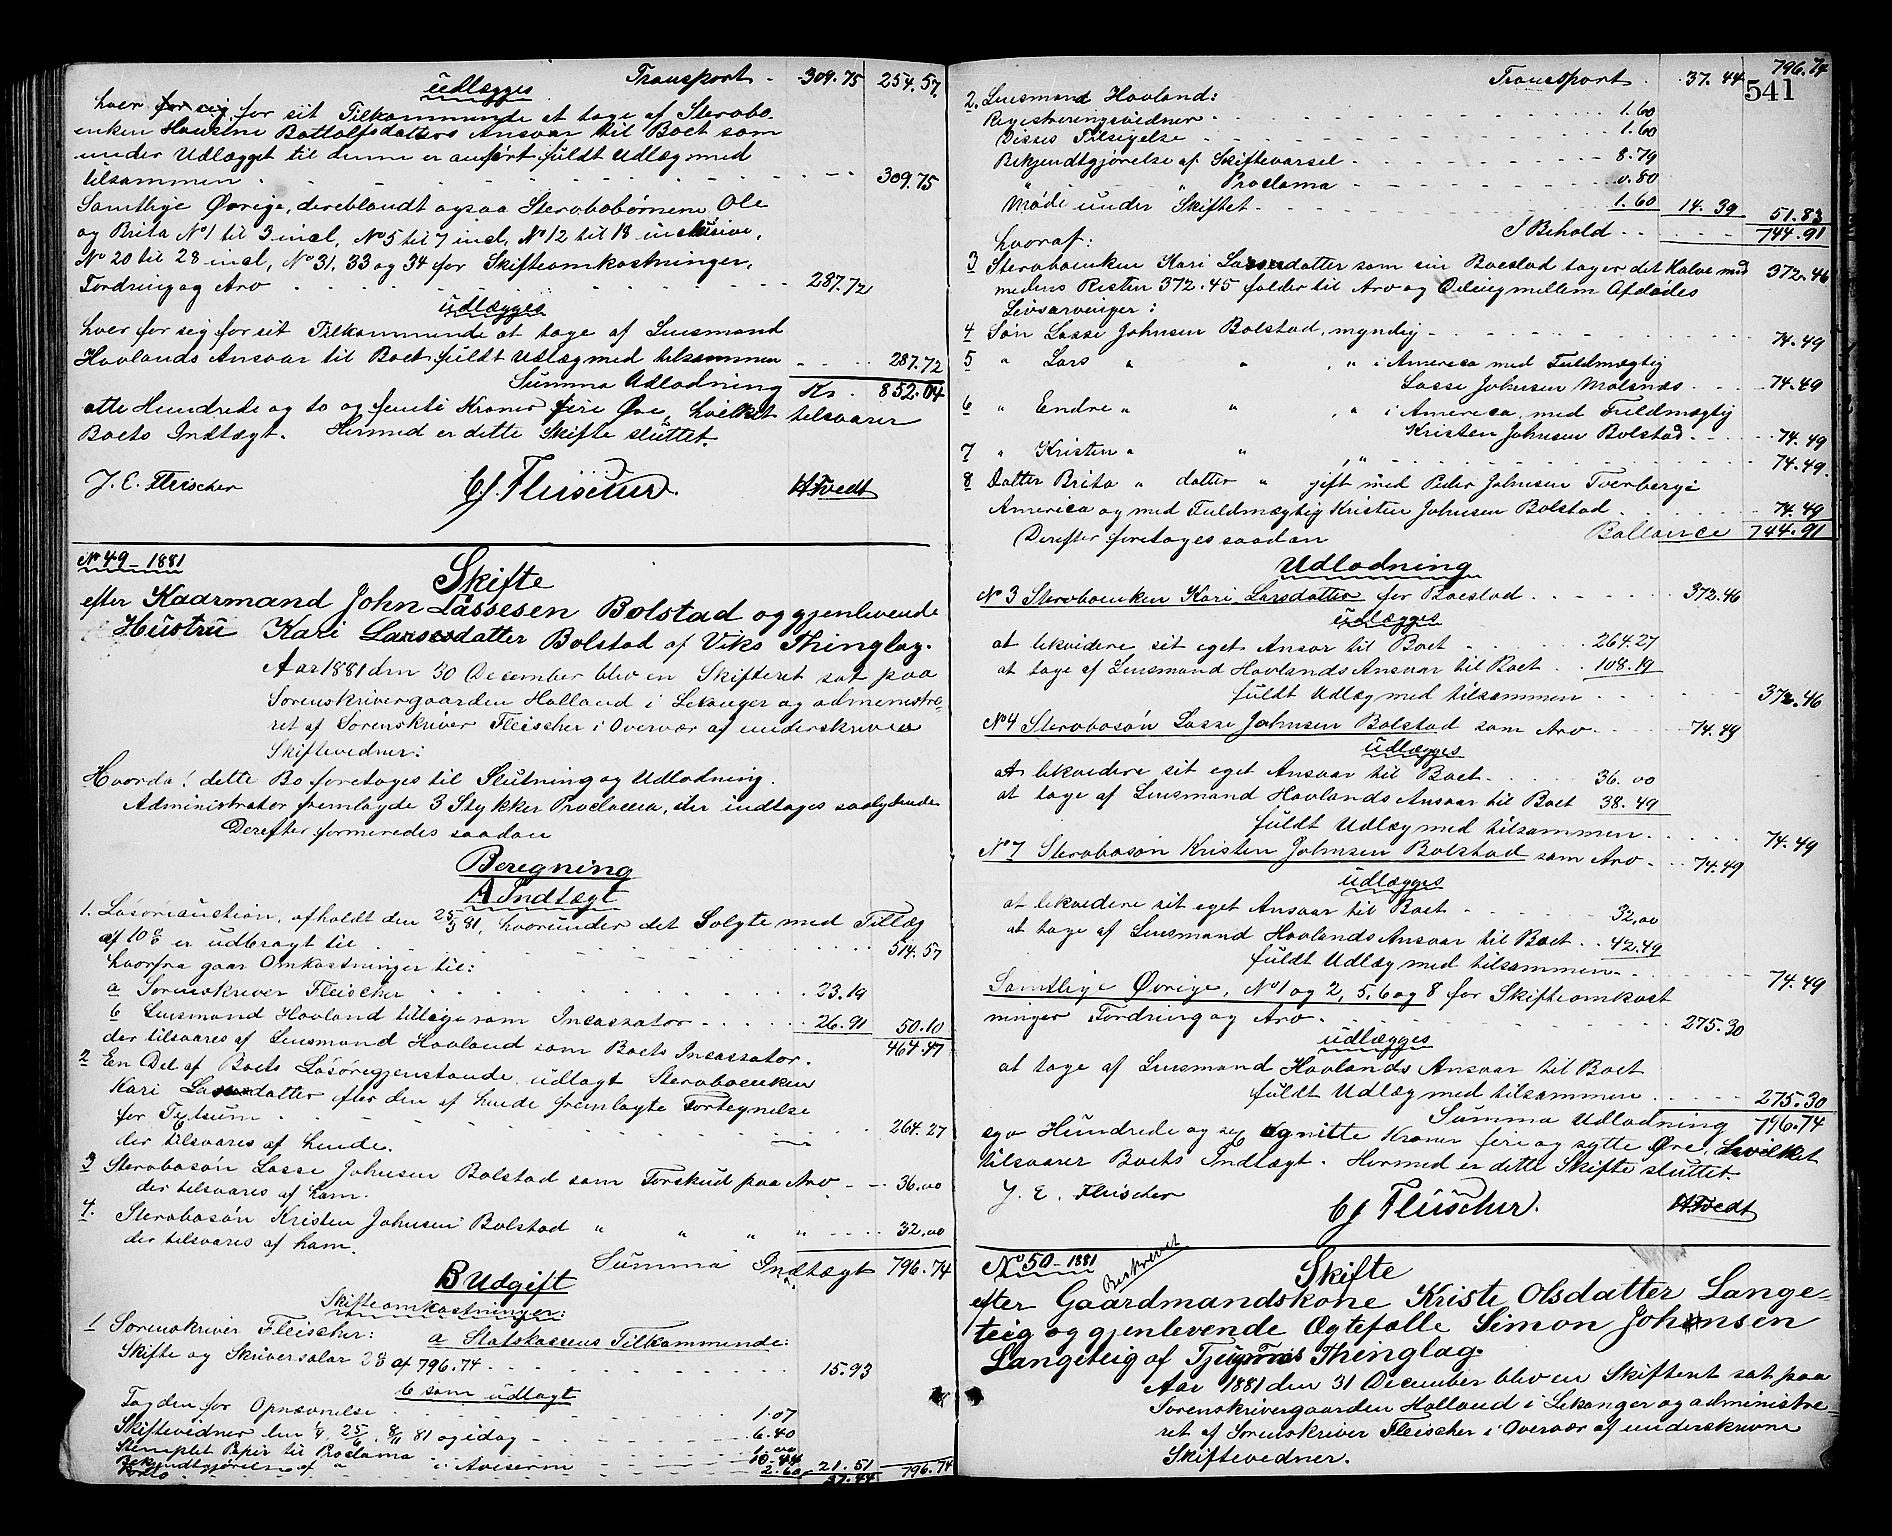 Transport - 309.75 254.57.
udlægges
hver for sig for sit Tilkommende at tage af Sterbo-
enken Hansine Bottolfsdatters Ansvar til Boet som
under Udlægget til denne er anført fuldt Udlæg med
tilsammen 309.75
Samtlige Øvrige, dereblandt ogsaa Sterbobørnene Ole
og Brita No 1 til 3 incl, No 5 til 7 incl, No 12 til 18 inclusive,
No 20 til 28 incl, No 31. 33 og 34 for Skifteomkostninger,
Fordring og Arv 287.72
udlægges
hver for sig for sit Tilkommende at tage af Lensmand
Hovlands Ansvar til Boet fuldt Udlæg med tilsammen 287.72
Summa Udlodning Kr. 852.04
otte Hundrede og to og femti Kroner fire Øre, hvilket tilsvarer
Boets Indtægt. Hermed er dette Skifte sluttet.
J. C. Fleischer CJ. Fleischer. ATvedt
No 49 - 1881
Skifte
efter Kaarmand John Lassesen Bolstad og gjenlevende
Hustru Kari Larsdatter Bolstad af Viks Thinglag.
Aar 1881 den 30 December blev en Skifteret sat paa
Sorenskrivergaarden Holland i Lekanger og administre-
ret af Sorenskriver Fleischer i Overvær af underskrevne
Skiftevidner:
Hvorda! dette Bo foretages til Slutning og Udlodning.
Administrator fremlagde 3 Stykker Proclama, der indtages saalydende
Derefter formeredes saadan
Beregning
A Indtægt
1. Løsøreauction, afholdt den 25/3 81, hvorunder det Solgte med Tillæg
af 10 % er udbragt til 514.57
hvorfra gaar Omkostninger til:
a Sorenskriver Fleischer 23.19
b Lensmand Hovland tillige som Incassator 26.91 50.10
der tilsvares af Lensmand Hovland som Boets Incassator. 464.47
2 En Del af Boets Løsøregjenstande udlagt Sterboenken
Kari Larsdatter efter den af hende fremlagte Fortegnelse
for Taxtsum 264.27
der tilsvares af hende.
3 Sterbosøn Lasse Johnsen Bolstad som Forskud paa Arv - - 36.00
der tilsvares af ham.
4. Sterbosøn Kristen Johnsen Bolstad " " " " 32.00
der tilsvares af ham.
Summa Indtægt 796.74
B Udgift
Skifteomkostninger:
1 Sorenskriver Fleischer: a Statskassens Tilkommende:
Skifte og Skriversalær 2% af 796.74 15.93
b som udlagt
Tagden for Opnævnelse 1.07
Skiftevidner den 1/4, 25/6, 8/11 81 og idag 6.40
Stemplet Papir til Proclama 1.00
Bekjendtgjørelse af " i Aviserne 10.44
Porto 2.60 21.51
37.44 796.74
Transport 37.44 796.74
541
2. Lensmand Hovland:
Registreringsvidner 1.60
Disses Tilsigelse 1.60
Bekjendtgjørelse af Skiftevarsel 8.79
" " Proclama 0.80
Møde under Skiftet 1.60 14.39 51.83
I Behold 744.91
hvoraf:
3 Sterboenken Kari Larsdatter som sin Boeslod tager det Halve med 372.46
medens Resten 372.45 falder til Arv og Deling mellem Afdødes
Livsarvinger:
4 Søn Lasse Johnsen Bolstad, myndig 74.49
5 " Lars " " , " i America med Fuldmægtig
Lasse Johnsen Molsnæs 74.49
6 " Endre " " , " i America, med Fuldmægtig
Kristen Johnsen Bolstad 74.49
7 " Kristen " " , " 74.49.
8 Datter Brita " datter " gift med Peder Johnsen Tverberg i
America og med Fuldmægtig Kristen Johnsen Bolstad 74.49
Derefter foretages saadan Ballance 744.91
Udlodning
No 3 Sterboenken Kari Larsdatter for Boeslod 372.46
udlægges
at likvidere sit eget Ansvar til Boet 264.27
at tage af Lensmand Hovlands Ansvar til Boet 108.19
fuldt Udlæg med tilsammen 372.46
No 4 Sterbosøn Lasse Johnsen Bolstad som Arv 74.49
udlægges
at likvidere sit eget Ansvar til Boet 36.00
at tage af Lensmand Hovlands Ansvar til Boet 38.49
fuldt Udlæg med tilsammen 74.49
No 7 Sterbosøn Kristen Johnsen Bolstad som Arv 74.49
udlægges
at likvidere sit eget Ansvar til Boet 32.00
at tage af Lensmand Hovlands Ansvar til Boet 42.49
fuldt Udlæg med tilsammen 74.49
Samtlige Øvrige, No 1 og 2, 5, 6 og 8 for Skifteomkost
ninger Fordring og Arv 275.30
udlægges
at tage af Lensmand Hovlands Ansvar til Boet
fuldt Udlæg med tilsammen 275.30
Summa Udlodning 796.74
syv Hundrede og sex og nitte Kroner fire og sytte Øre, hvilket
tilsvarer Boets Indtægt. Hermed er dette Skifte sluttet.
J. E. Fleischer CJ Fleischer. ATvedt
No 50 - 1881 Beskrevet
Skifte
efter Gaardmandskone Kristi Olsdatter Lange-
teig og gjenlevende Ægtefælle Simon Johnsen
Langeteig af Tjugums Thinglag.
Aar 1881 den 31 December blev en Skifteret sat paa
Sorenskrivergaarden Holland i Lekanger og administre-
ret af Sorenskriver Fleischer i Overvær af underskrevne
Skiftevidner.